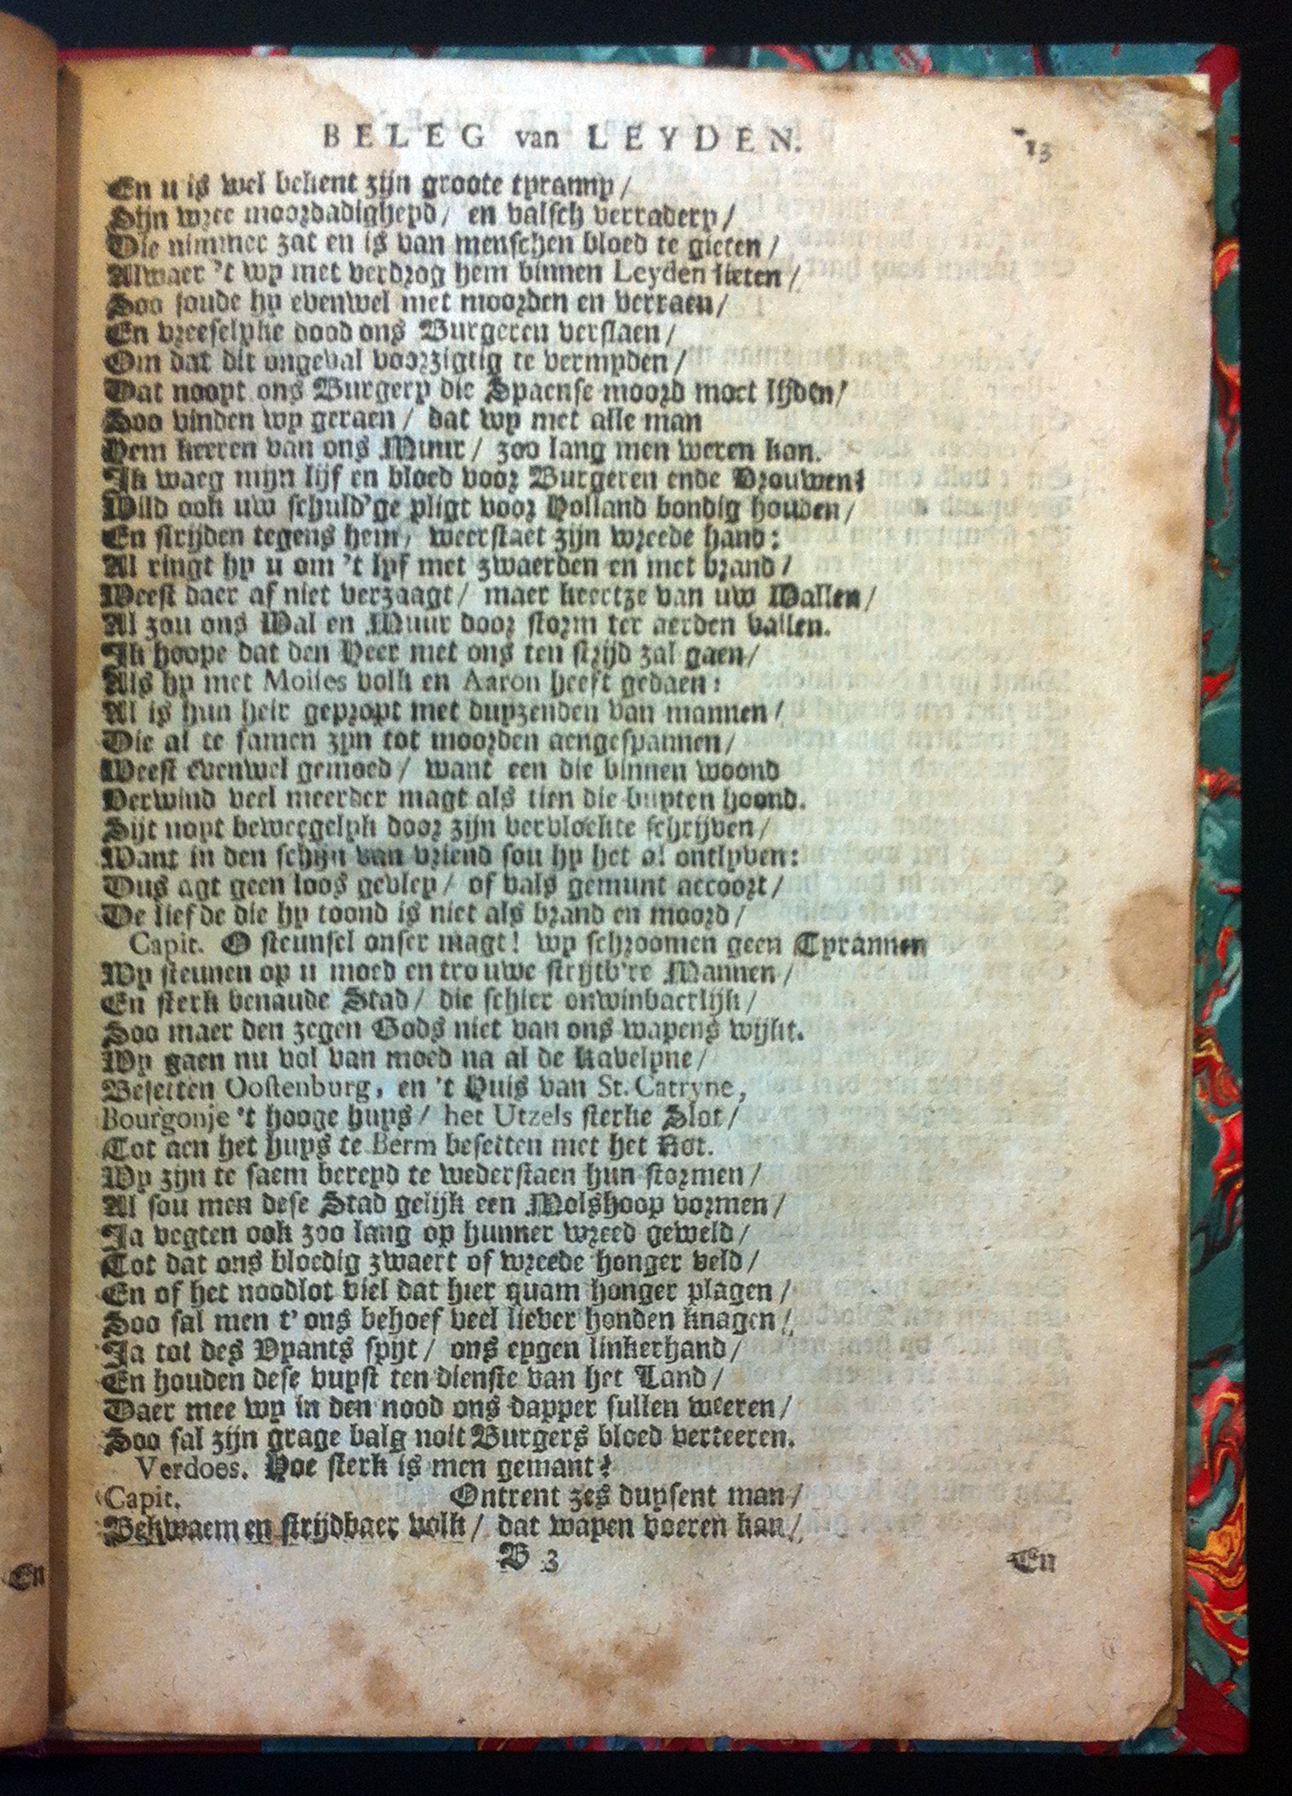 BELEG van LEYDEN. 13
En u is wel bekent zijn groote tyranny /
Sijn wree moordadigheyd / en valsch verradery /
Die nimmer zat en is van menschen bloed te gieten /
Alwaer 't wy met verdrog hem binnen Leyden lieten /
Soo soude hy evenwel met moorden en verraen /
En vreeselyke dood ons Burgeren verslaen /
Om dat dit ongeval voorzigtig te vermyden /
Dat noopt ons Burgery die Spaense moord moet lijden /
Soo vinden wy geraen / dat wy met alle man
Hem keeren van ons Muur / zoo lang men weren kan.
Ik waeg mijn lijf en bloed voor Burgeren ende Vrouwen:
Wild ook uw schuld'ge pligt voor Holland bondig houden /
En strijden tegens hem / weerstaet zijn wreede hand:
Al ringt hy u om 't lyf met zwaerden en met brand /
Weest daer af niet verzaagt / maer keertze van uw Wallen /
Al zou ons Wal en Muur door storm ter aerden vallen.
Ik hoope dat den Heer met ons ten strijd zal gaen /
Als hy met Moises volk en Aaron heeft gedaen:
Al is hun heir gepropt met duyzenden van mannen /
Die al te samen zyn tot moorden aengespannen /
Weest evenwel gemoed / want een die binnen woond
Verwind veel meerder magt als tien die buyten hoond.
Sijt noyt beweegelyk door zijn vervloekte schrijven /
Want in den schijn van vriend sou hy het al ontlyven:
Dus agt geen loos gevley / of vals gemunt accoort /
De liefde die hy toond is niet als brand en moord /
Capit. O steunsel onser magt! wy schroomen geen Tyrannen
Wy steunen op u moed en trouwe strijtb're Mannen /
En sterk benaude Stad / die schier onwinbaerlijk /
Soo maer den zegen Gods niet van ons wapens wijkt.
Wy gaen nu vol van moed na al de Ravelyne /
Besetten Oostenburg, en 't Huis van St. Catryne,
Bourgonje 't hooge huys / het Utzels sterke Slot /
Tot aen het huys te Berm besetten met het Rot.
Wy zijn te saem bereyd te wederstaen hun stormen /
Al sou men dese Stad gelijk een Molshoop vormen /
Ja vegten ook zoo lang op hunner wreed geweld /
Tot dat ons bloedig zwaert of wreede honger veld /
En of het noodlot viel dat hier quam honger plagen /
Soo sal men t' ons behoef veel liever honden knagen /
Ja tot des Vyants spyt / ons eygen linkerhand /
En houden dese vuyst ten dienste van het Land /
Daer mee wy in den nood ons dapper sullen weeren /
Soo sal zijn grage balg noit Burgers bloed verteeren.
Verdoes. Hoe sterk is men gemant?
Capit. Ontrent zes duysent man /
Bekwaem en strijdbaer volk / dat wapen voeren kan /
B 3 En
En